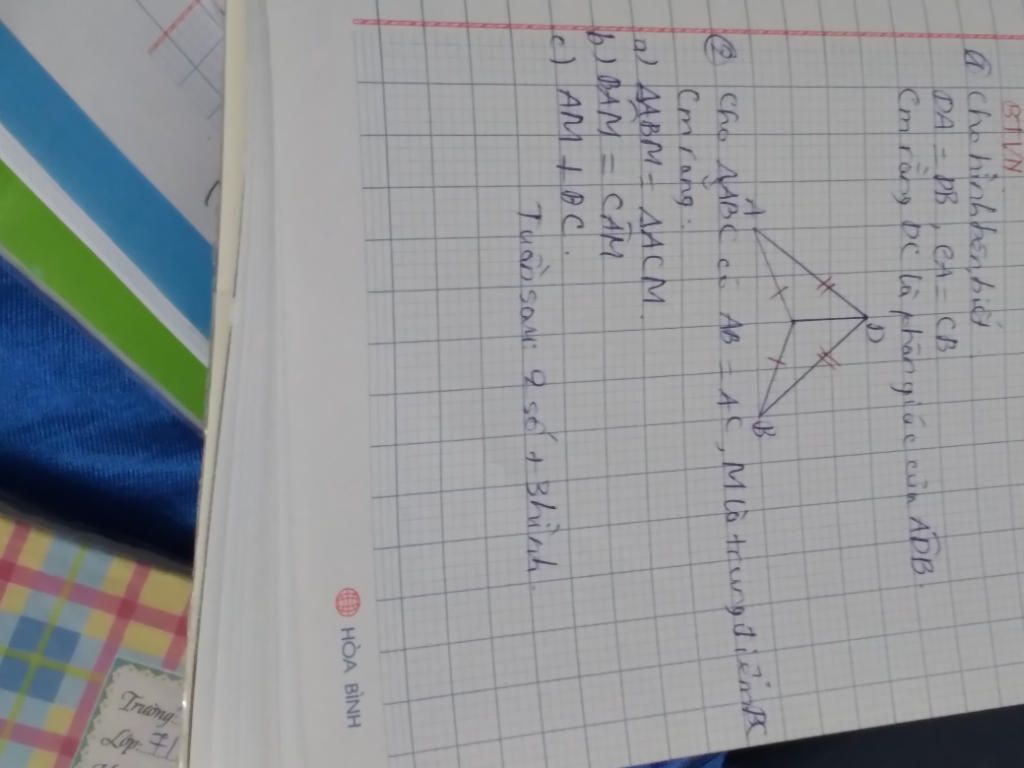 BTVN
① Cho hình bên biết
DA = DB, CA = CB
Cm rằng DC là phân giác của ADB.
D
A
B
② Cho ΔABC có AB = AC, M là trung điểm BC
Cm rằng:
a) ΔABM = ΔACM.
b) BAM = CAM
c) AM ⊥ BC.
Tuần sau: 2 số + 3 hình.
HÒA BÌNH
Trường:
Lớp: 71